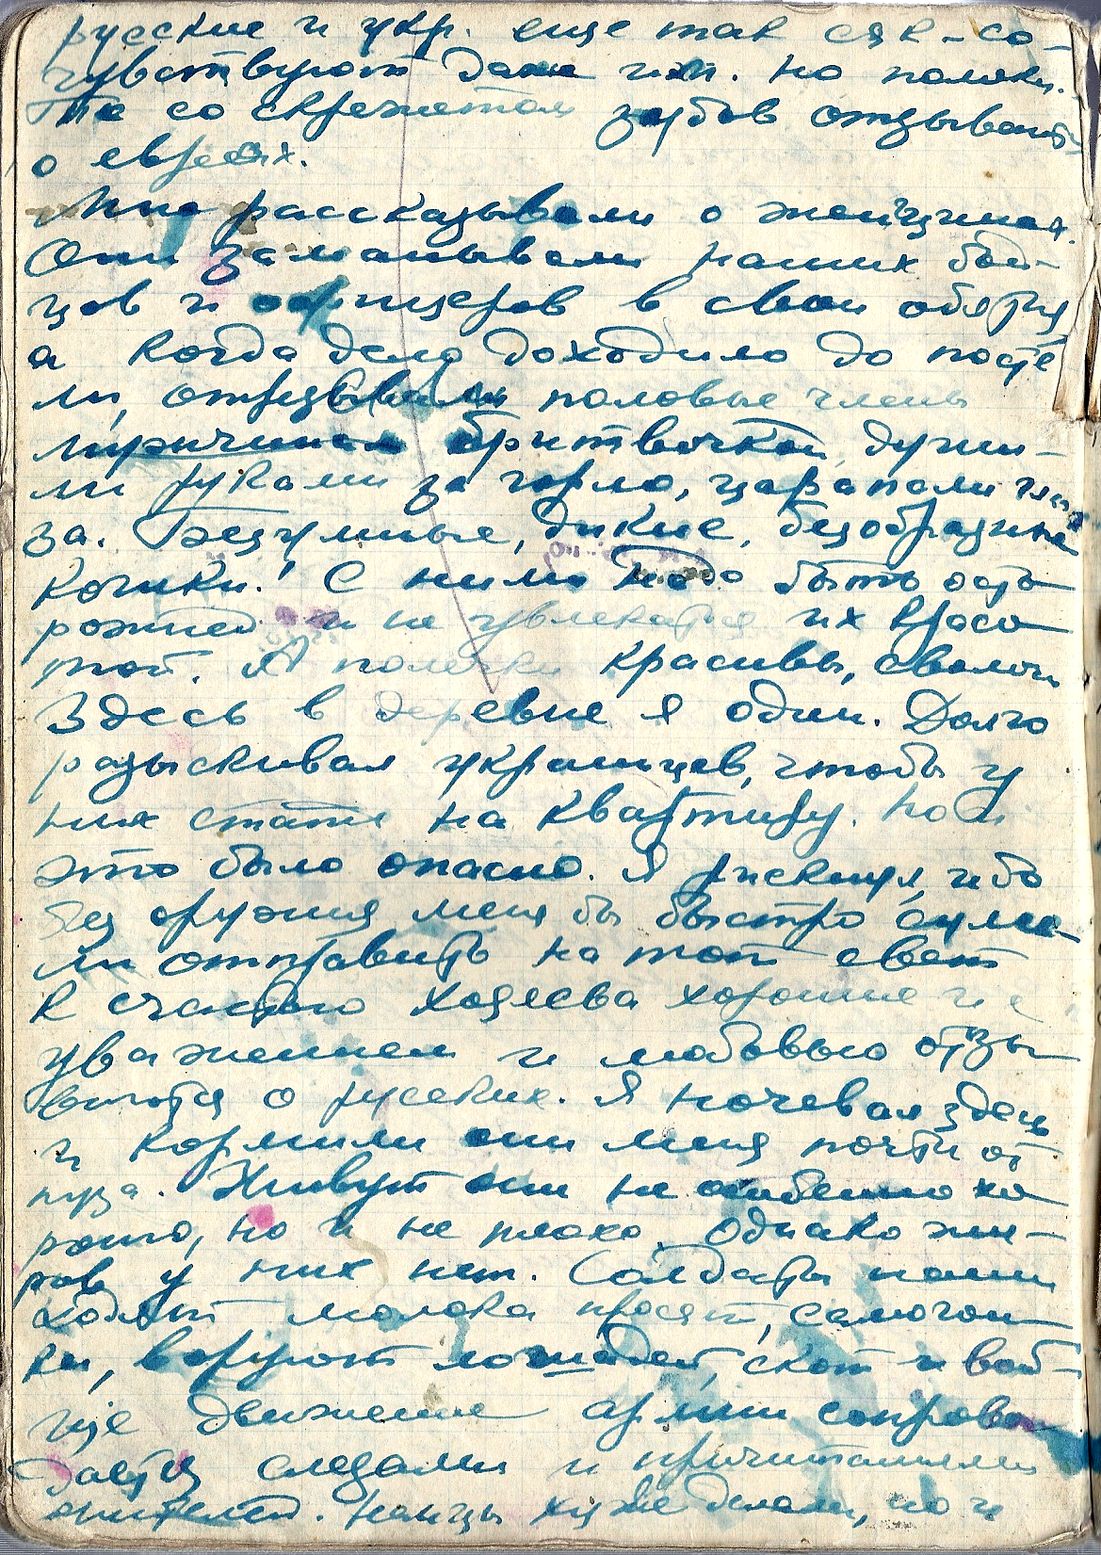 русские и укр. еще так сяк – со-
чувствуют даже им. но поляки.
Те со скрежетом зубов отзываются
о евреях.
Мне рассказывали о женщинах.
Они заманывали наших бой-
цов и офицеров в свои обятия
а когда дело доходило до посте
ли, отрезывали половые члены
бритвочкой, души-
ли руками за горло, царапали гла-
за. Безумные, дикие, безобразные
кошки! С ними надо быть осто
рожней и не увлекатся их красо
той. А полячки красивы, сволочи
Здесь в деревне я один. Долго
разыскивал украинцев, чтобы у
них стать на квартиру. но и
это было опасно. Я рискнул, ибо
без оружия меня бы быстро суме-
ли отправить на тот свет
К счастью хозяева хорошие и с
уважением и любовью отзы
ваются о русских. Я ночевал здесь
и кормили они меня почти от
пуза. Живут они не особенно хо
рошо, но и не плохо. Однако жи-
ров у них нет. Солдаты наши
ходят молока просят, самогон
ки, воруют лошадей, скот и вооб-
ще движение армии сопрово
дается следами и причитаниями
жителей. Немцы хуже делали, но и